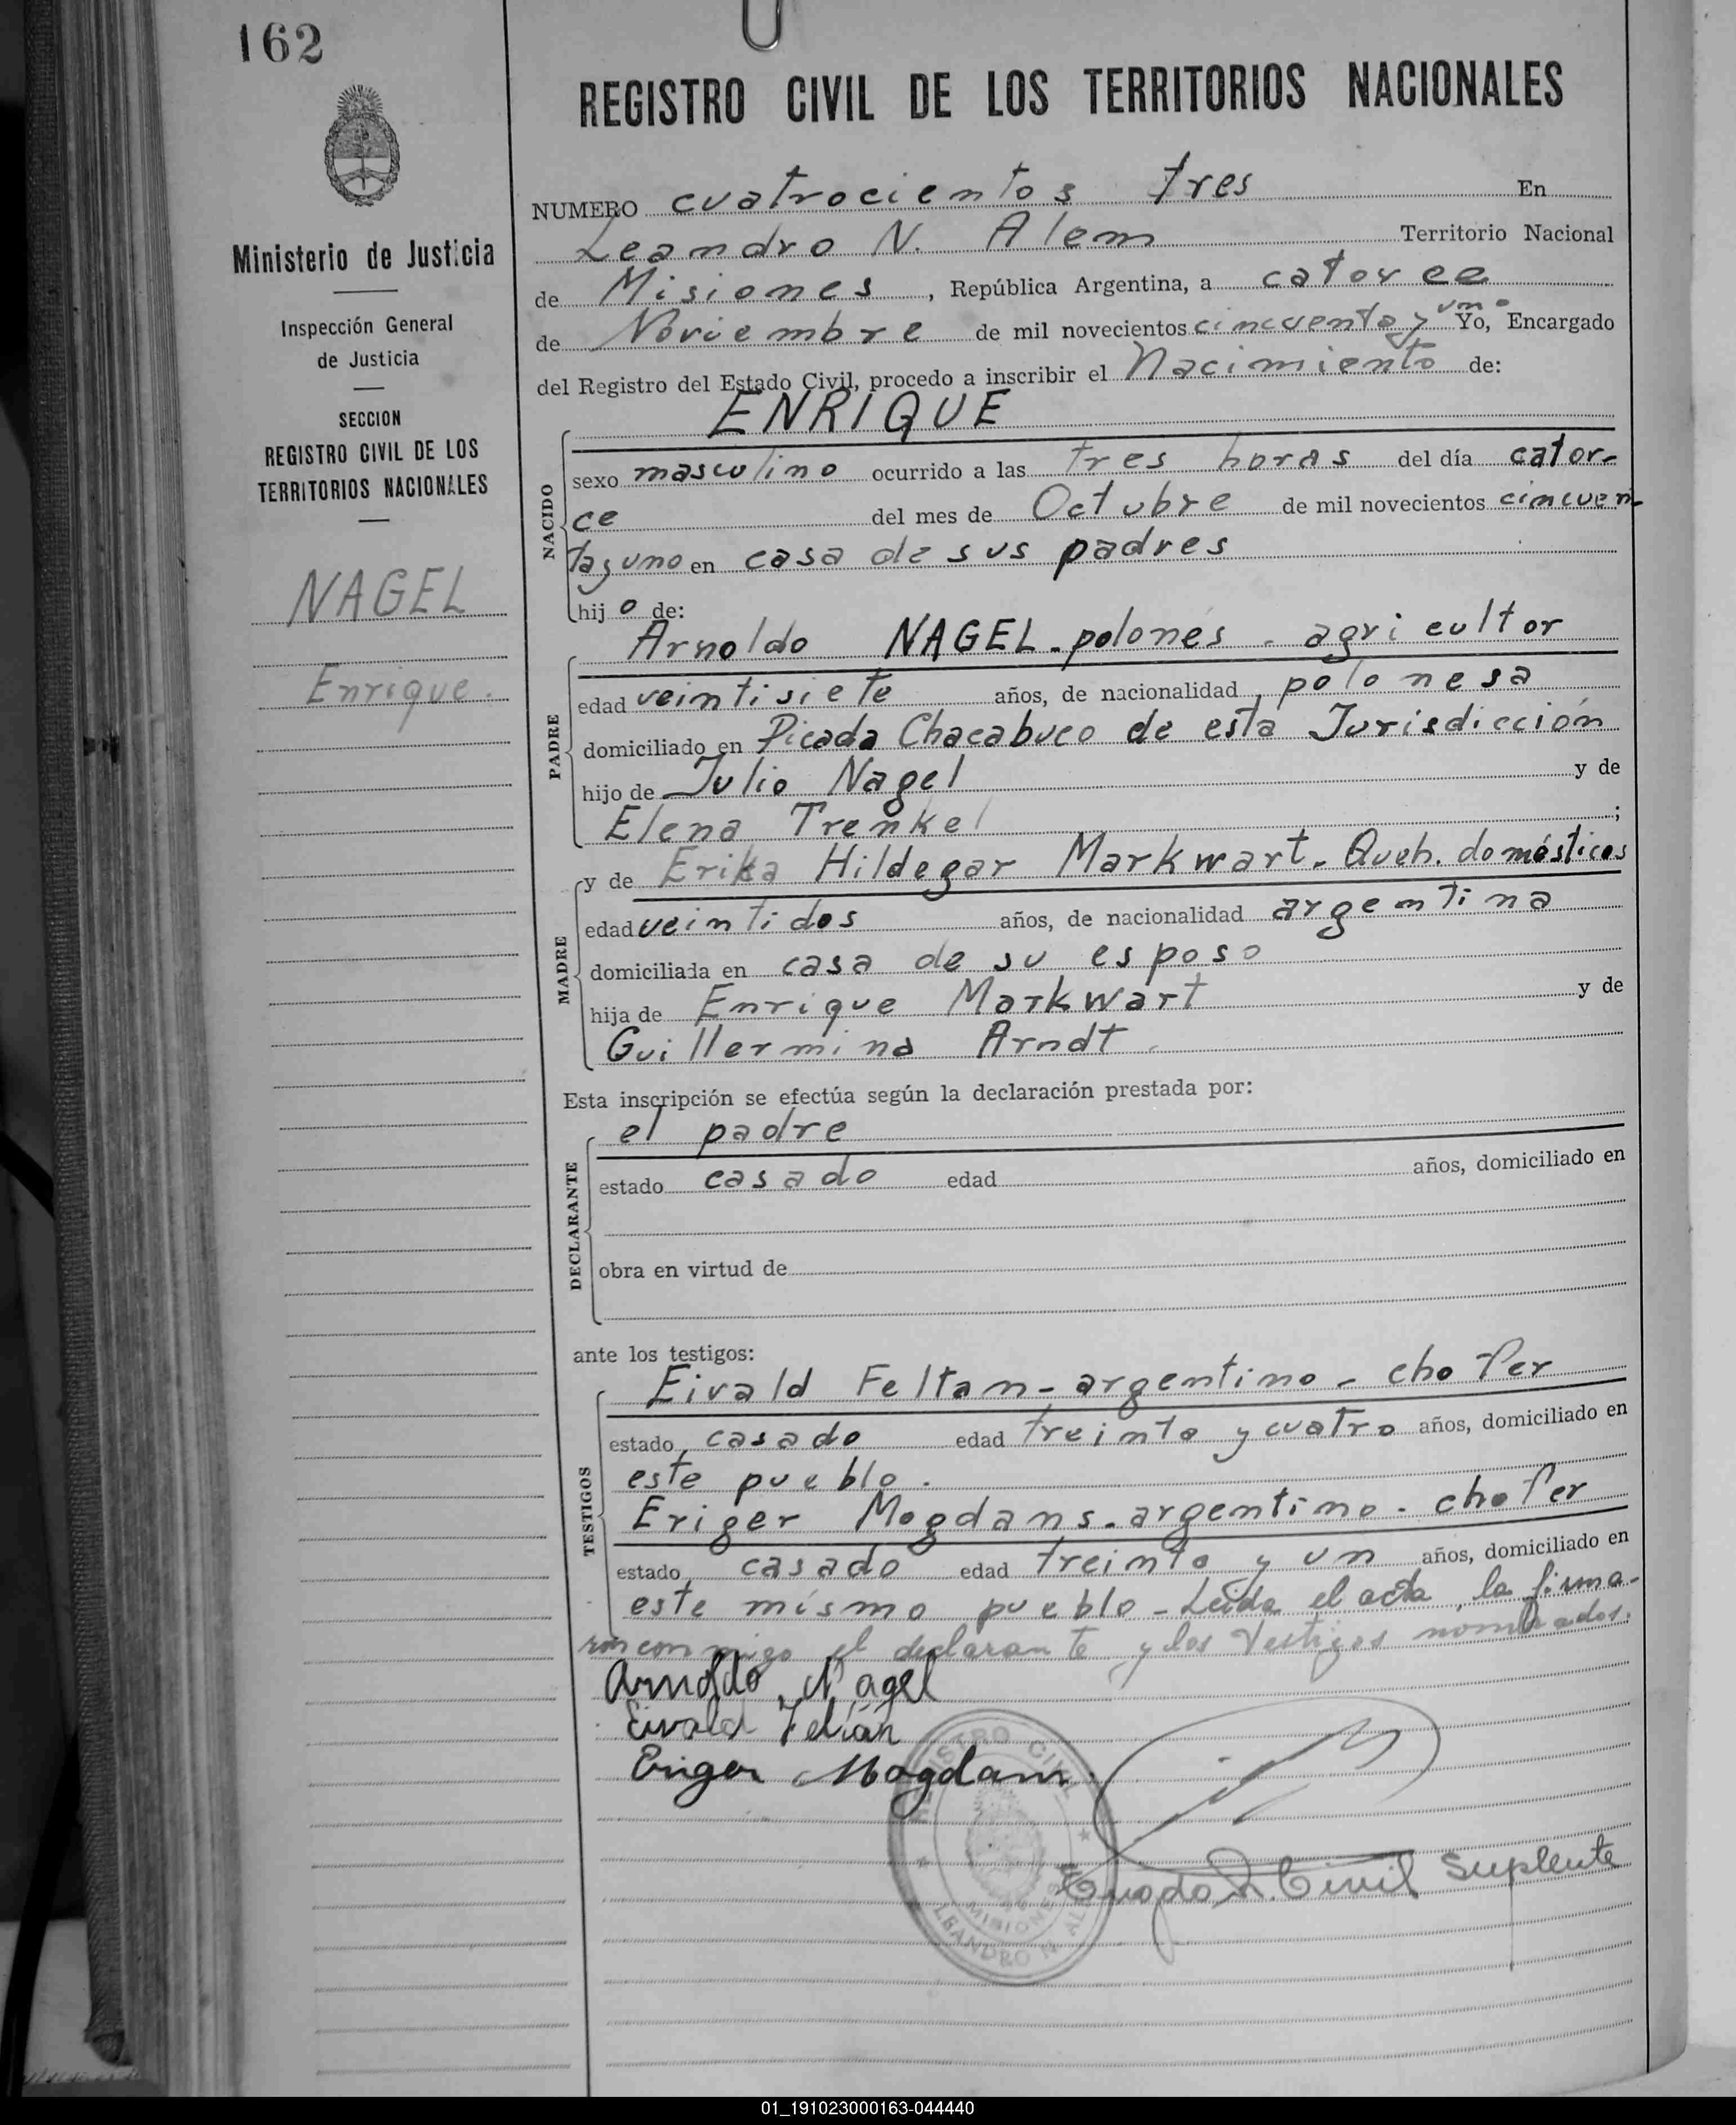 162
REGISTRO CIVIL DE LOS TERRITORIOS NACIONALES
Ministerio de Justicia
Inspección General
de Justicia
SECCION
REGISTRO CIVIL DE LOS
TERRITORIOS NACIONALES
NAGEL
Enrique.
NUMERO cuatrocientos tres En
Leandro N. Alem Territorio Nacional
de Misiones, República Argentina, a catorce
de Noviembre de mil novecientos cincuenta y uno Yo, Encargado
del Registro del Estado Civil, procedo a inscribir el Nacimiento de:
ENRIQUE
NACIDO
sexo masculino ocurrido a las tres horas del día cator-
ce del mes de Octubre de mil novecientos cincuen-
ta y uno en casa de sus padres
hijo de:
Arnoldo NAGEL - polonés - agricultor
PADRE
edad veintisiete años, de nacionalidad polonesa
domiciliado en Picada Chacabuco de esta Jurisdicción
hijo de Julio Nagel y de
Elena Trenkel ;
y de Erika Hildegar Markwart - Queh. domésticos
MADRE
edad veintidos años, de nacionalidad argentina
domiciliada en casa de su esposo
hija de Enrique Markwart y de
Guillermina Arndt
Esta inscripción se efectúa según la declaración prestada por:
el padre
DECLARANTE
estado casado edad años, domiciliado en
obra en virtud de
ante los testigos:
Eivald Feltan - argentino - chofer
TESTIGOS
estado casado edad treinta y cuatro años, domiciliado en
este pueblo.
Eriger Mogdans - argentino - chofer
estado casado edad treinta y un años, domiciliado en
este mismo pueblo - Leida el acta, la firma-
ron conmigo el declarante y los testigos nombrados.
Arnoldo Nagel
Eivald Feltan
Eriger Mogdans
REGISTRO CIVIL
MISIONES
LEANDRO N. ALEM
Engdo R. Civil Suplente
01_191023000163-044440